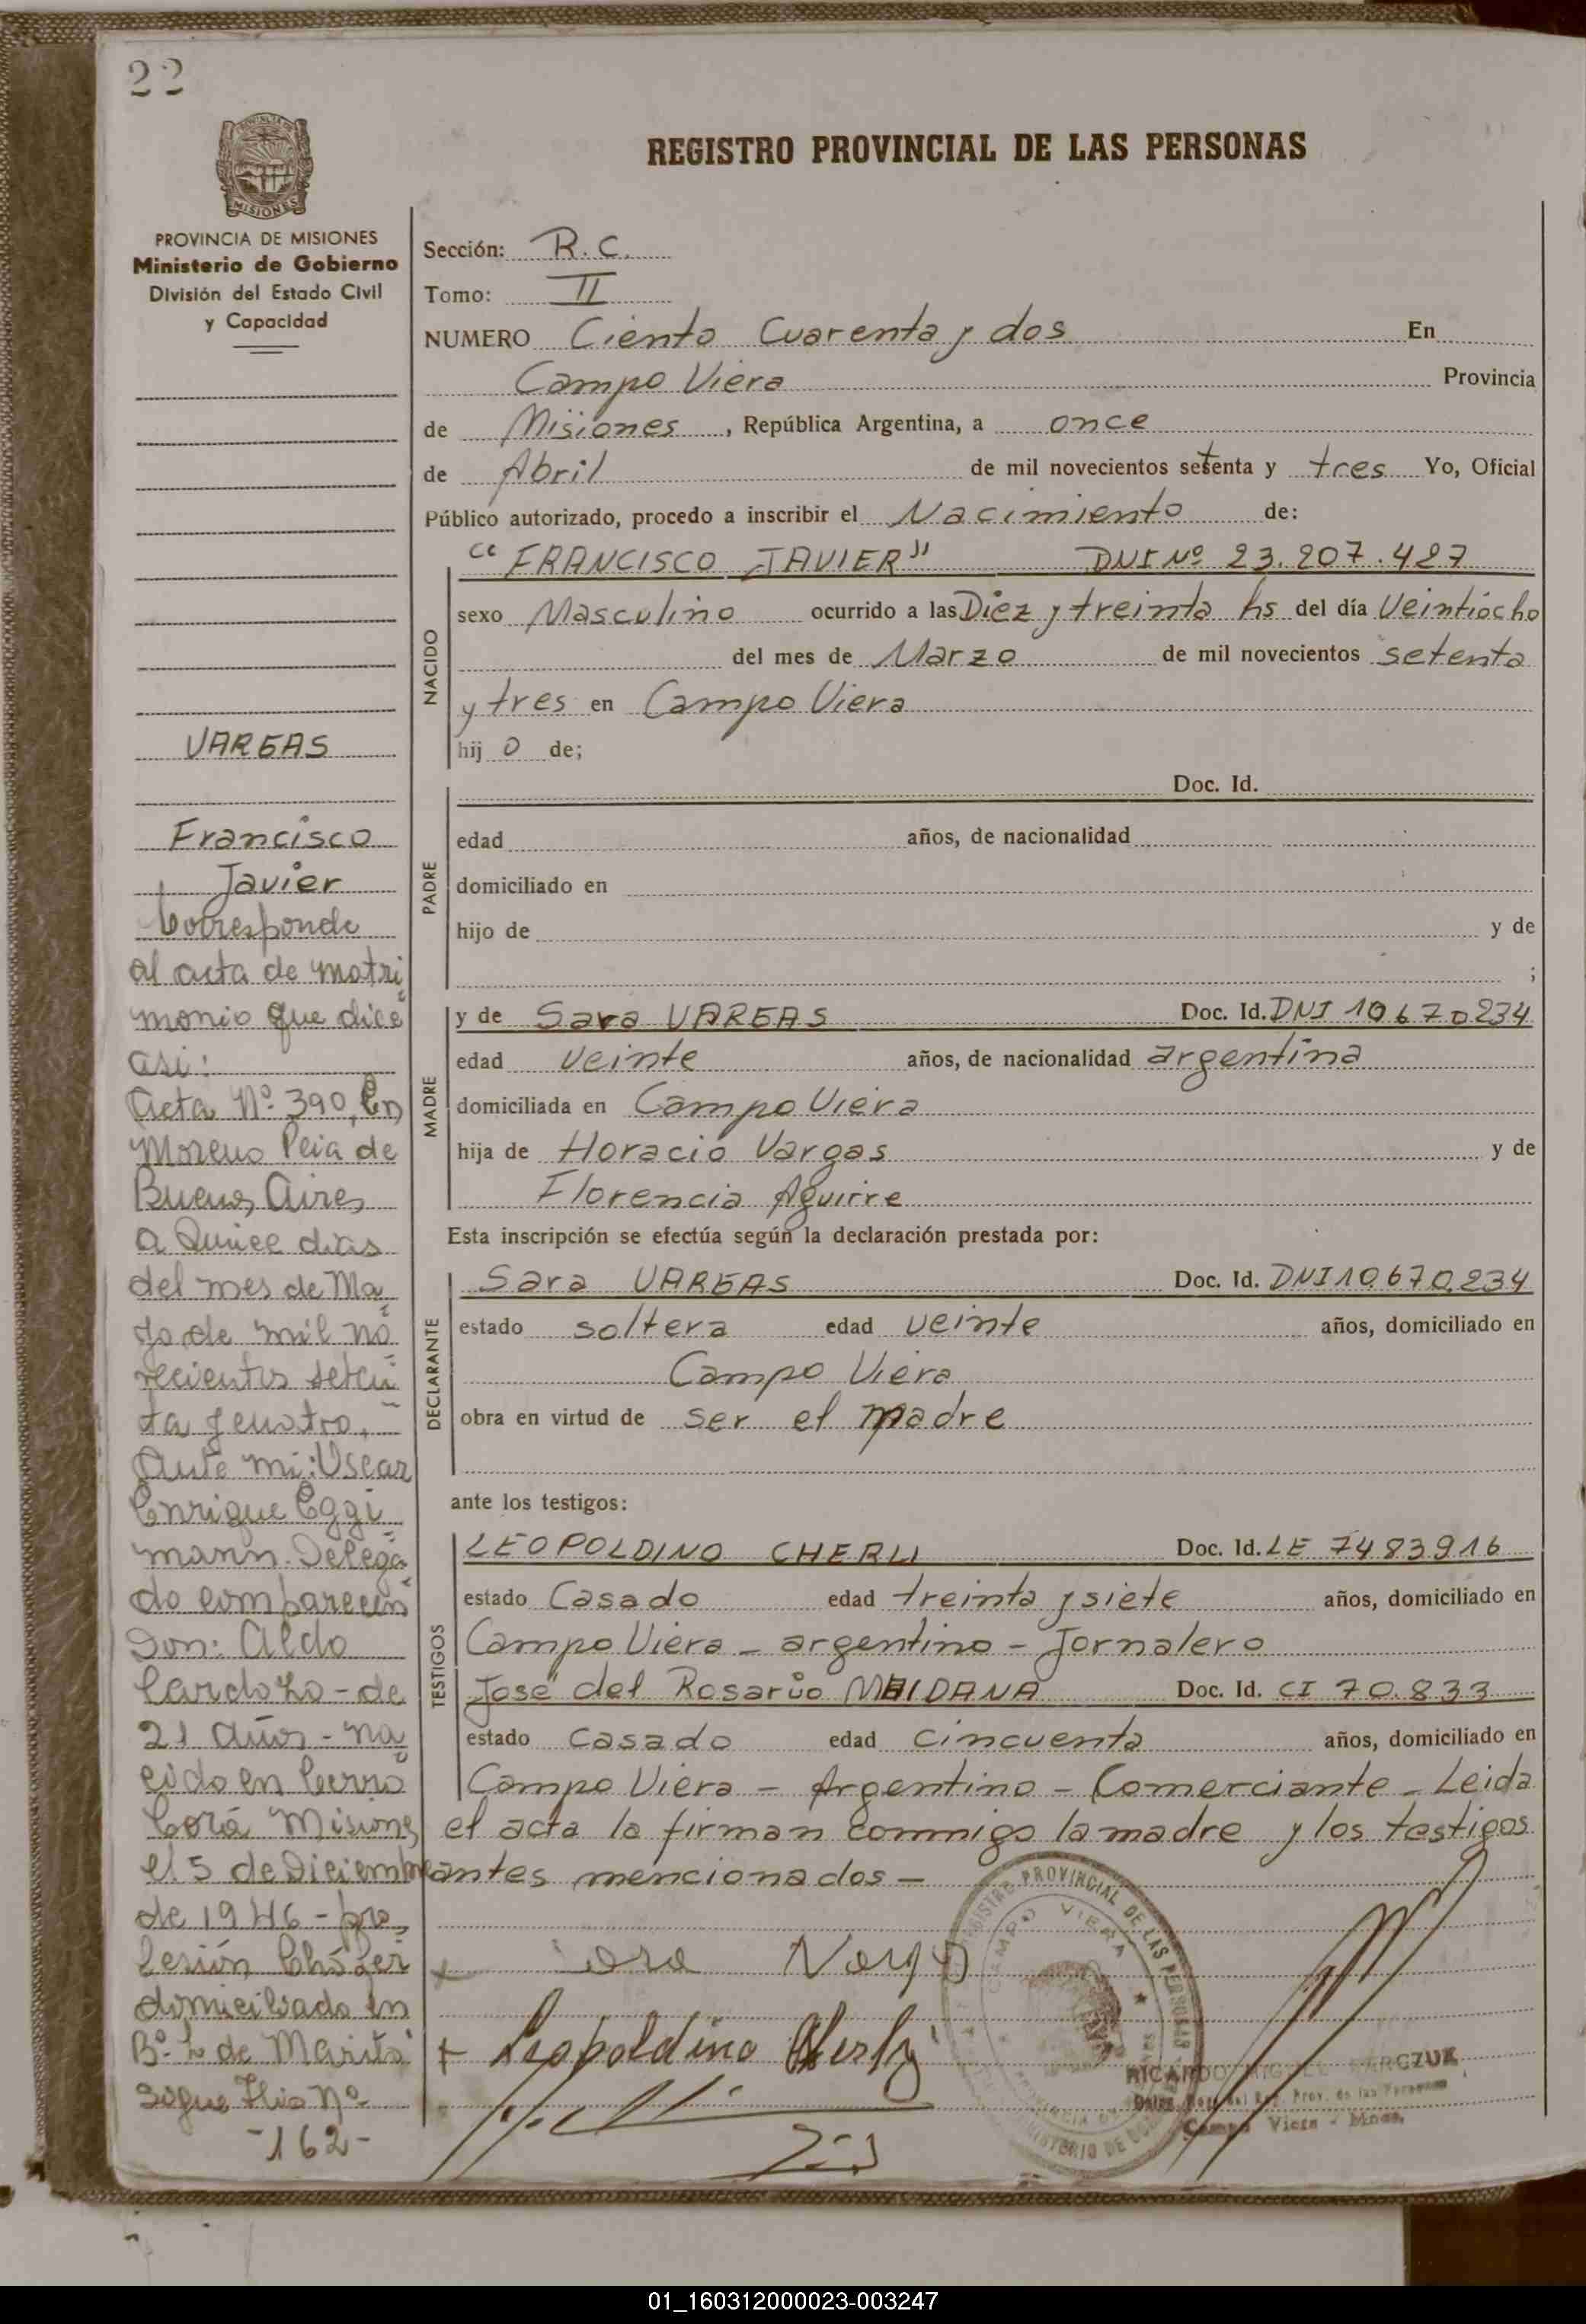 22
REGISTRO PROVINCIAL DE LAS PERSONAS
MISIONES
PROVINCIA DE MISIONES
Ministerio de Gobierno
División del Estado Civil
y Capacidad
VARGAS
Francisco
Javier
Corresponde
al acta de matri
monio que dice
asi:
Acta Nº 390, En
Moreno Pcia de
Buenos Aires
a Quince dias
del mes de Ma
yo de mil no
vecientos seten
ta y cuatro,
Ante mi: Oscar
Enrique Eggi
mann. Delega
do comparecen
Don: Aldo
Cardozo - de
21 años - na
cido en Cerro
Corá Misiones
el 5 de Diciembre
de 1946 - pro
fesión Chófer
domiciliado en
Bº L de Marito
Sigue Flio Nº
-162-
Sección: R.C.
Tomo: II
NUMERO Ciento Cuarenta y dos En
Campo Viera Provincia
de Misiones, República Argentina, a once
de Abril de mil novecientos setenta y tres Yo, Oficial
Público autorizado, procedo a inscribir el Nacimiento de:
NACIDO
"FRANCISCO JAVIER" DNI Nº 23.207.427
sexo Masculino ocurrido a las Diez y treinta hs del día Veintiocho
del mes de Marzo de mil novecientos setenta
y tres en Campo Viera
hij o de;
PADRE
Doc. Id.
edad años, de nacionalidad
domiciliado en
hijo de y de
;
MADRE
y de Sara VARGAS Doc. Id. DNI 10670234
edad veinte años, de nacionalidad argentina
domiciliada en Campo Viera
hija de Horacio Vargas y de
Florencia Aguirre
Esta inscripción se efectúa según la declaración prestada por:
DECLARANTE
Sara VARGAS Doc. Id. DNI 10.670.234
estado soltera edad veinte años, domiciliado en
Campo Viera
obra en virtud de ser el madre
ante los testigos:
TESTIGOS
LEOPOLDINO CHERLI Doc. Id. LE 7483916
estado Casado edad treinta y siete años, domiciliado en
Campo Viera - argentino - Jornalero
José del Rosario MAIDANA Doc. Id. CI 70.833
estado casado edad cincuenta años, domiciliado en
Campo Viera - Argentino - Comerciante - Leida
el acta la firman conmigo la madre y los testigos
antes mencionados -
Leopoldino Cherly
REGISTRO PROVINCIAL DE LAS PERSONAS
CAMPO VIERA
RICARDO MIGUEL
Prov. de las Personas
Campo Viera - Mnes.
01_160312000023-003247